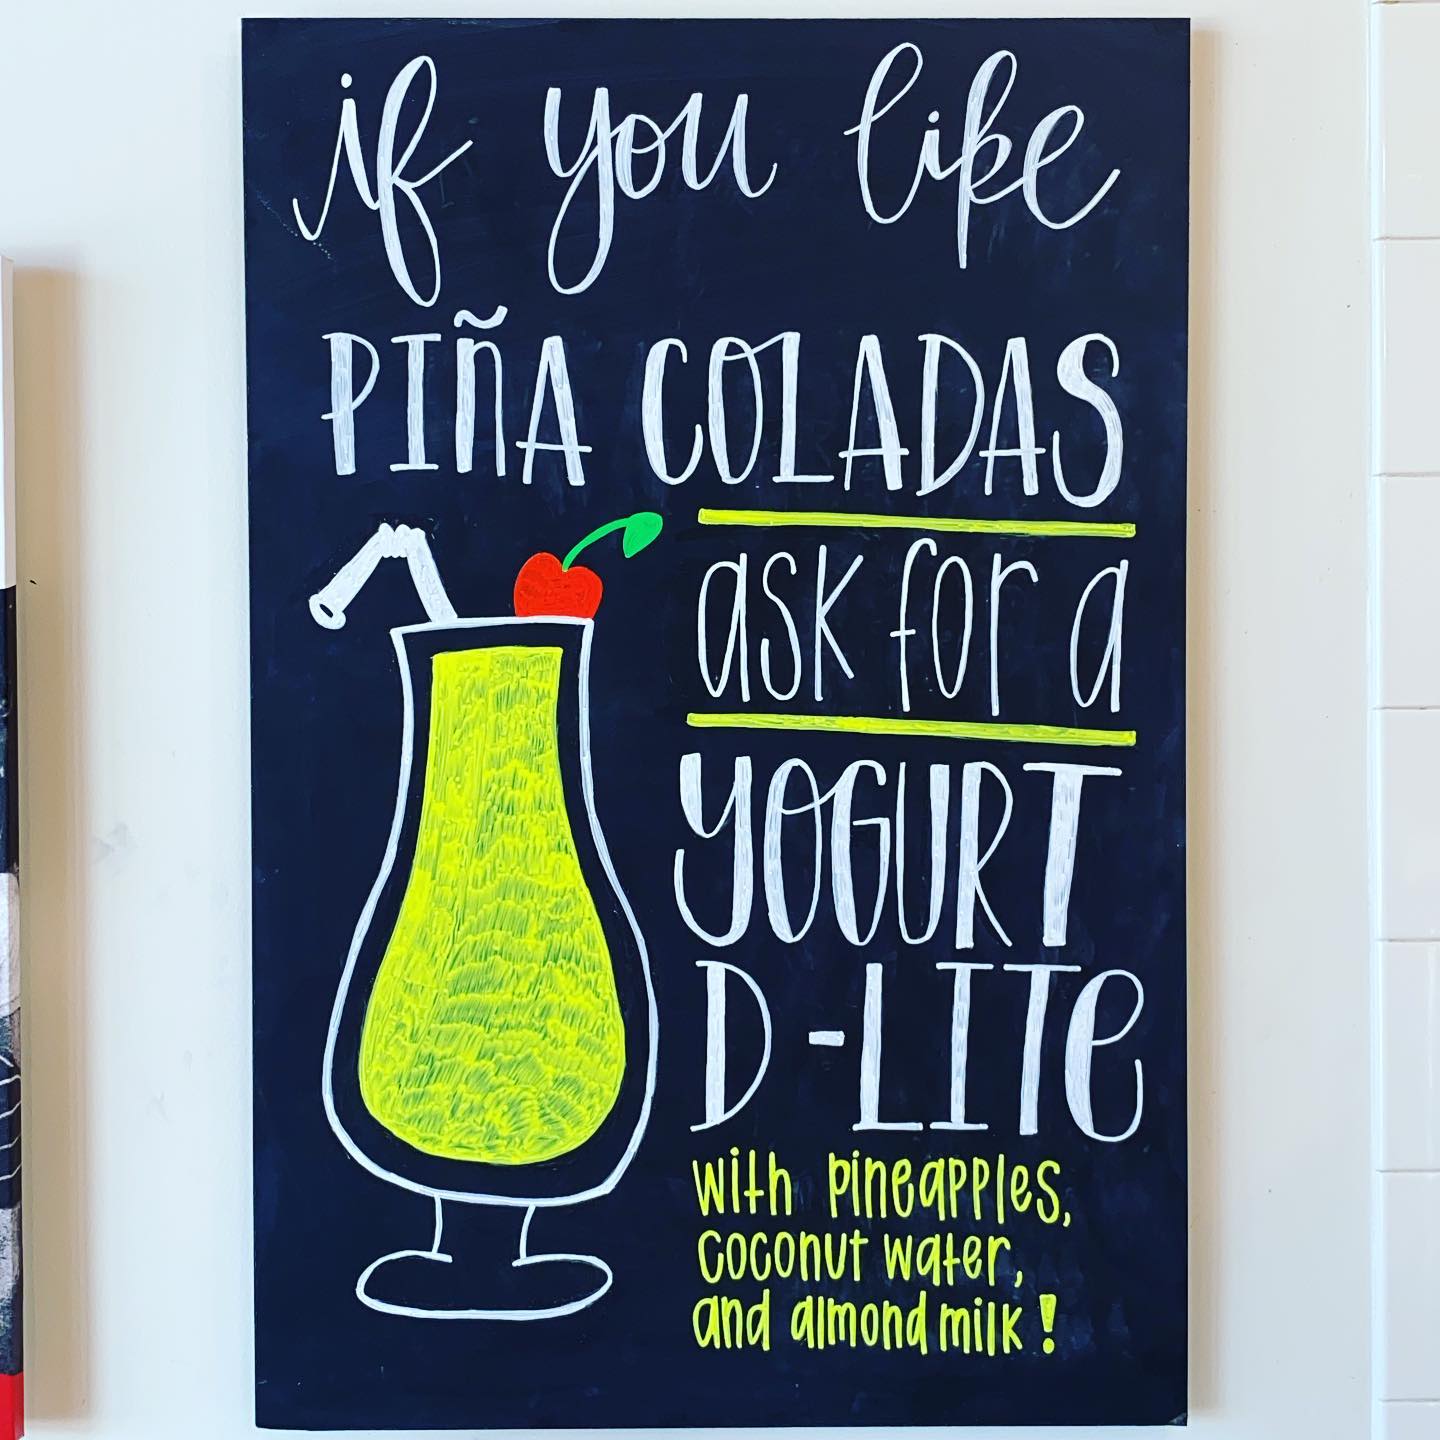 if you like
PIÑA COLADAS
ask for a
YOGURT
D-LITE
with pineapples,
coconut water,
and almond milk!